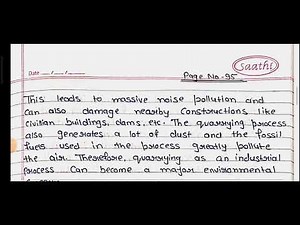 Saathi
Date ......./......./.......
Page No-95
This leads to massive noise pollution and
can also damage nearby constructions like
civilian buildings, dams, etc. The quarrying process
also generates a lot of dust and the fossil
fuels used in the process greatly pollute
the air. Therefore, quarrying as an industrial
process can become a major environmental